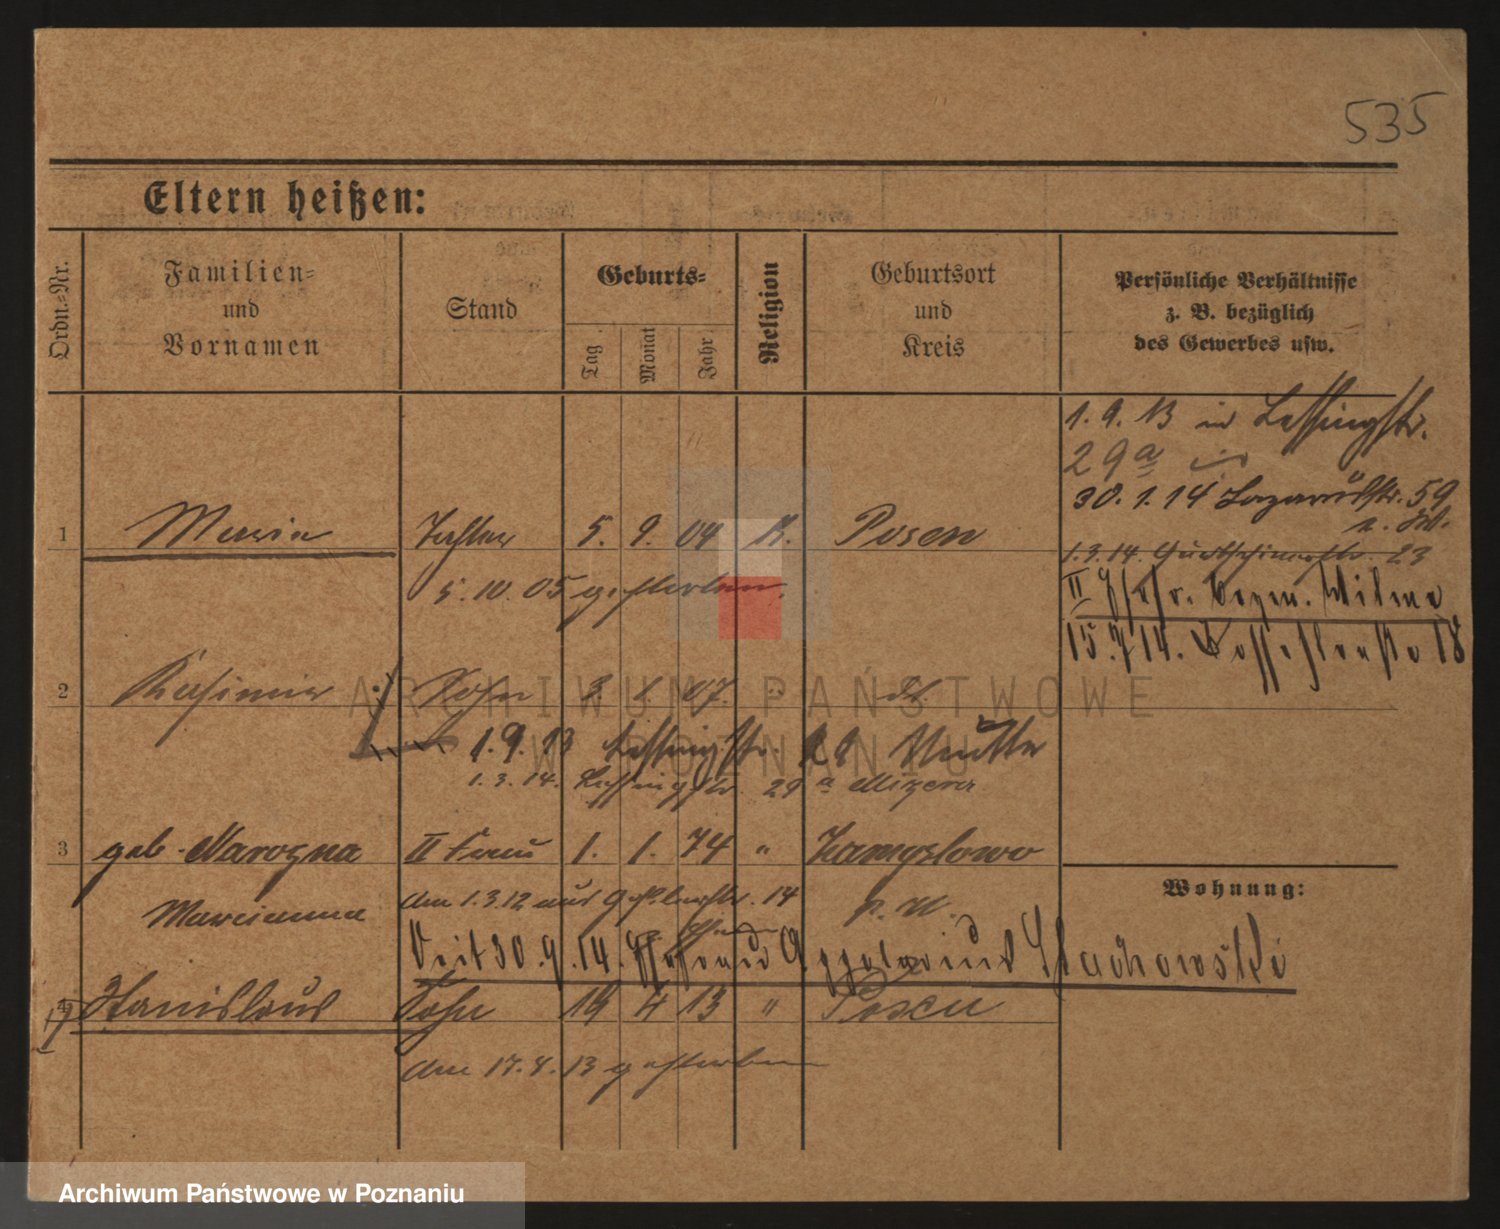 535
Eltern heißen:
Ordn.-Nr.
Familien-
und
Vornamen
Stand
Geburts-
Tag
Monat
Jahr
Religion
Geburtsort
und
Kreis
Persönliche Verhältnisse
z. B. bezüglich
des Gewerbes usw.
1.9.13 in Lessingstr.
29a
30.1.14 Lazarusstr. 59
1 Maria Tochter 5. 9. 04 K. Posen
1.3.14. 23
5.10.05 gestorben.
II
15.7.14. 18
2 Kasimir Sohn 3. 07. " do.
1.9.13 Lessingstr. Mutter
1.3.14. Lessingstr. 29a Mizera
3 geb. Narozna II Frau 1. 1. 74 " Zamyslowo
Marianna den 1.3.12 aus 14
30.9.14. Stachowski
4 Stanislaus Sohn 19 4 13 " Posen
den 17.8.13 gestorben
Wohnung:
ARCHIWUM PAŃSTWOWE
W POZNANIU
Archiwum Państwowe w Poznaniu